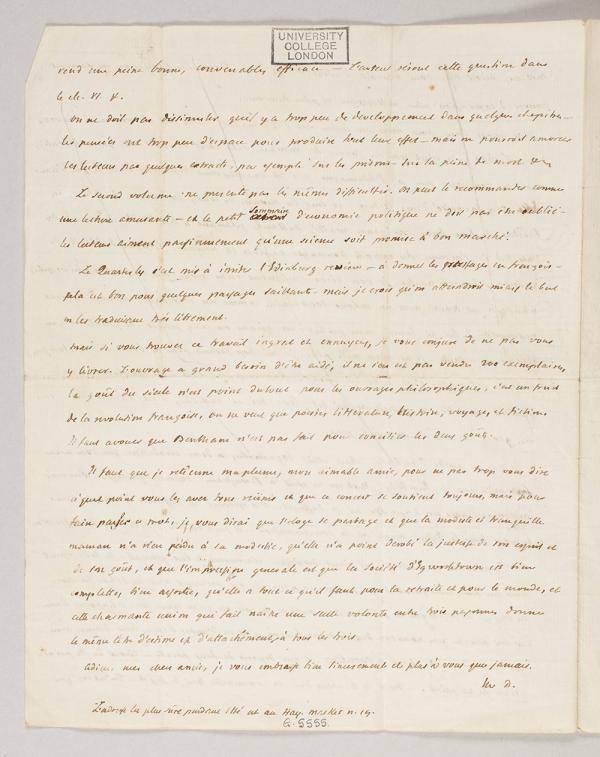 UNIVERSITY
COLLEGE
LONDON
rend une peine bonne, convenable, efficace — L'auteur résout cette question dans
le ch. VI. V.
on ne doit pas dissimuler qu'il y a trop peu de developpement dans quelques chapitres —
les pensées ont trop peu d'espace pour produire tout leur effet — mais ne pourroit amorcer
les lecteurs par quelques extraits, par exemple sur les prisons — sur la peine de mort &c
Le second volume ne presente pas les mêmes difficultés. on peut le recommander comme
une lecture amusante — et le petit sommaire d'economie politique ne doit pas etre oublié —
les lecteurs aiment passionnement qu'une science soit promise à bon marché.
Le Quarterley s'est mis à imiter l'Edinburg review — à donner les passages en françois —
cela est bon pour quelques passages saillants — mais je crois qu'on atteindroit mieux le but
en les traduisant très librement.
mais si vous trouvez ce travail ingrat et ennuyeux, je vous conjure de ne pas vous
y livrer. L'ouvrage a grand besoin d'être aidé, il ne s'en est pas vendu 200 exemplaires,
le goût du siecle n'est point du tout pour les ouvrages philosophiques, c'est un fruit
de la revolution françoise, on ne veut que poesies, litterature, histoire, voyages, et fictions
Il faut avouer que Bentham n'est pas fait pour concilier les deux goûts.
Il faut que je retienne ma plume, mon aimable amie, pour ne pas trop vous dire
à quel point vous les avez tous réunis et que ce concert se soutient toujours, mais pour
faire passer ce mot, je vous dirai que l'eloge se partage et que la modeste et tranquille
maman n'a rien perdu à sa modestie, qu'elle n'a point derobé la justesse de son esprit et
de son goût, et que l'impression generale est que la société d'Edgworthtown est bien
complette, bien assortie, qu'elle a tout ce qu'il faut pour la retraite et pour le monde, et
cette charmante union qui fait naître une seule volonté entre trois personnes donne
le même titre d'estime et d'attachement, à tous les trois.
adieu, mes chers amis, je vous embrasse bien sincerement et plus à vous que jamais.
D.
L'adresse la plus sûre pendant l'été est au Hay-market n. 19.
G. 5555.